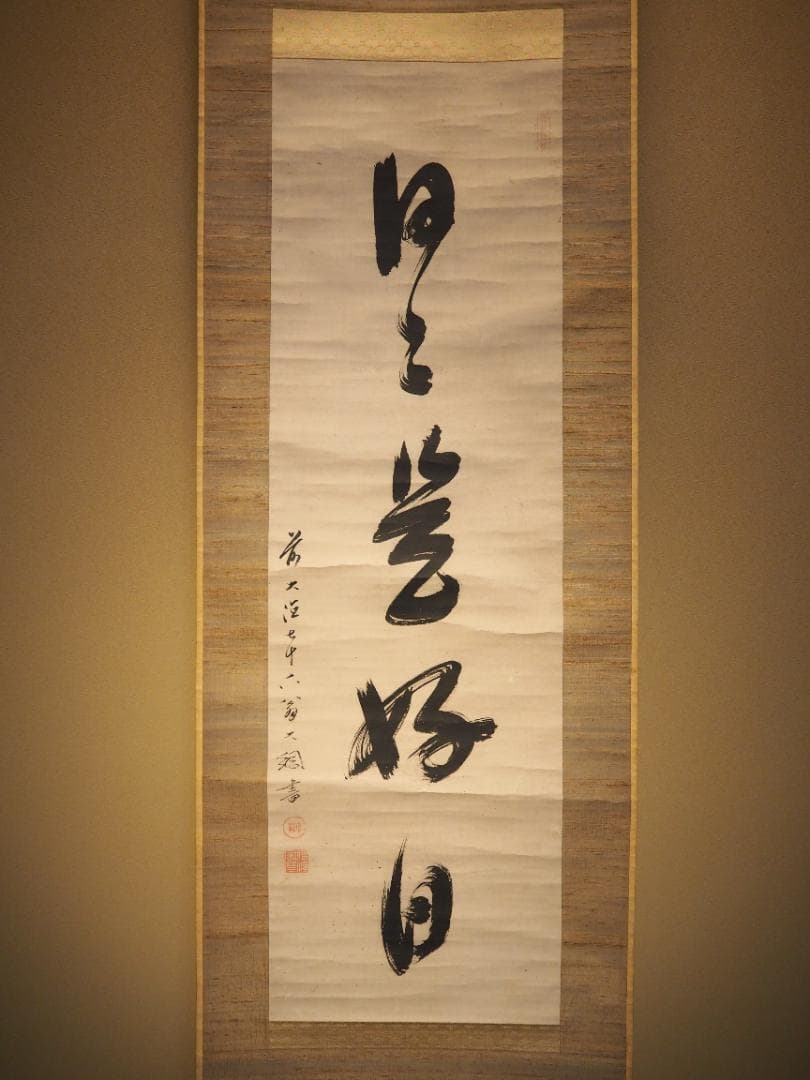 日々是好日
前大徳七十六翁大綱書